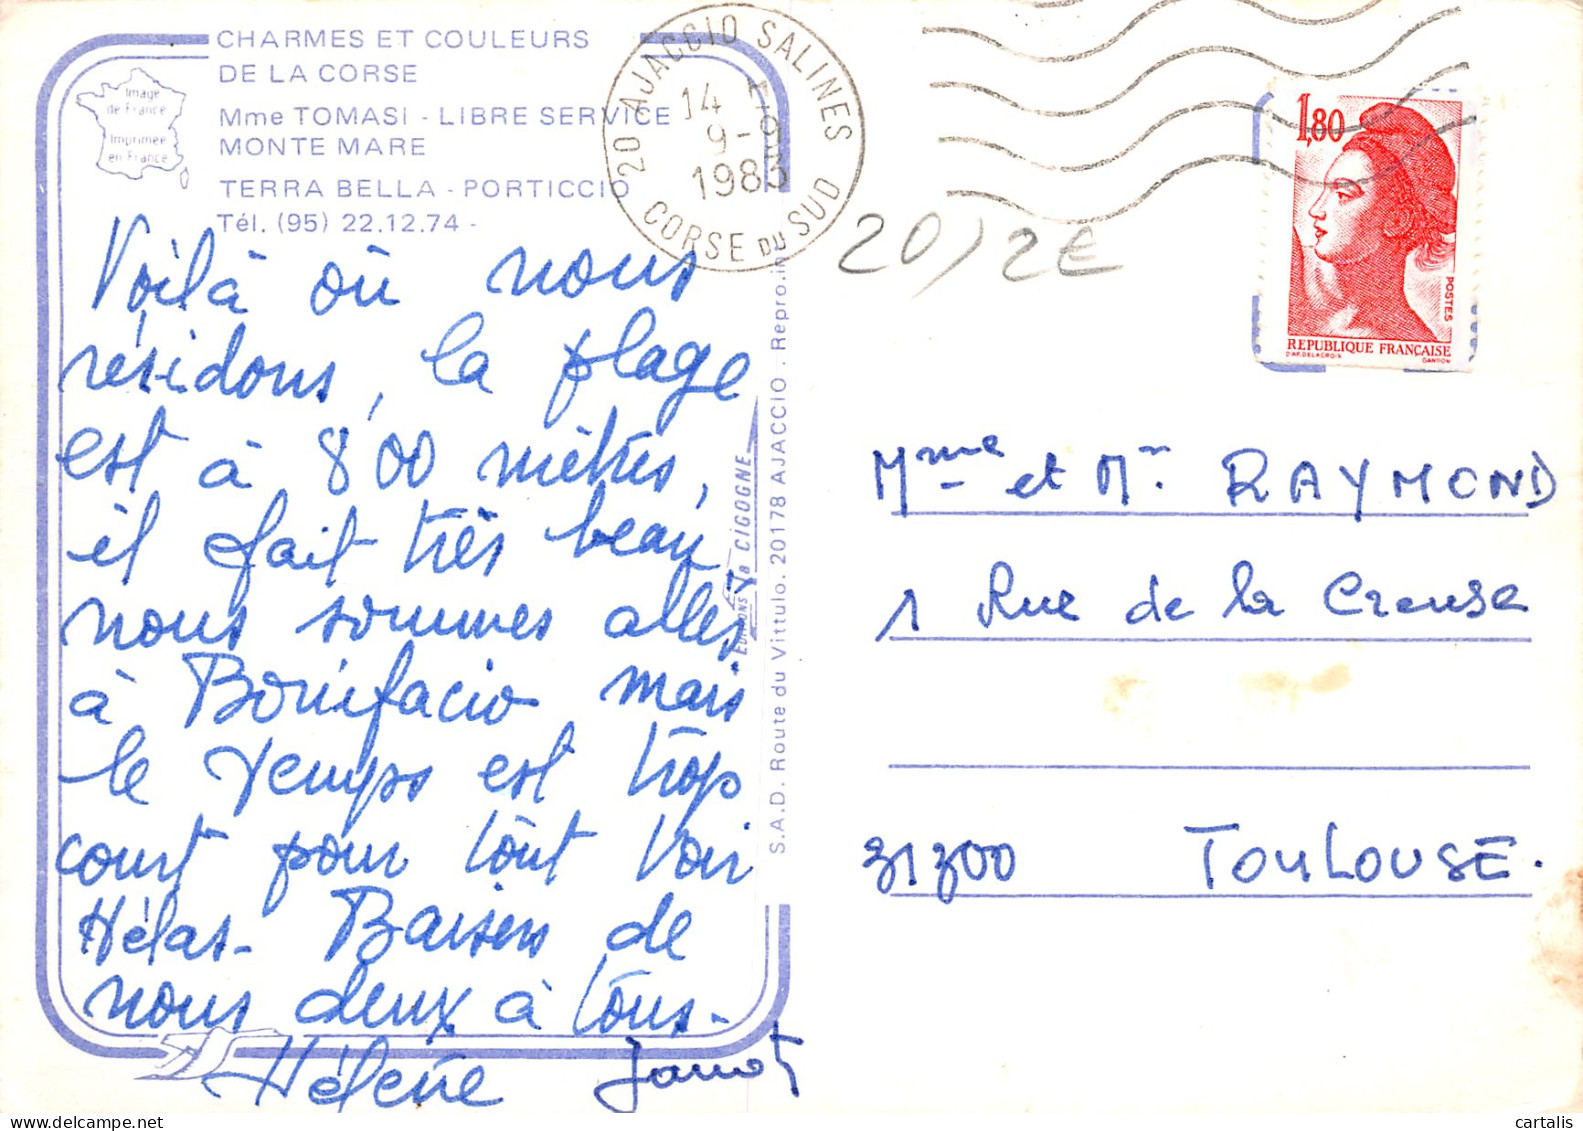 CHARMES ET COULEURS
DE LA CORSE
Mme TOMASI - LIBRE SERVICE
MONTE MARE
TERRA BELLA - PORTICCIO
Tél. (95) 22.12.74 -
Image
de France
Imprimée
en France
20 AJACCIO SALINES
14 H
9 - 9
1983
CORSE DU SUD
20) 2E
1,80
POSTES
REPUBLIQUE FRANÇAISE
D'AP. DELACROIX GANDON
Voilà où nous
résidons, la plage
est à 800 mètres,
il fait très beau,
nous sommes allés
à Bonifacio mais
le temps est trop
court pour tout voir
Hélas - Baisers de
nous deux à tous -
Hélène
S.A.D. Route du Vittulo. 20178 AJACCIO . Repro.in
EDITIONS la CIGOGNE
Mme et Mr. RAYMOND
1 Rue de la Creuse
31300 TOULOUSE.
cartalis